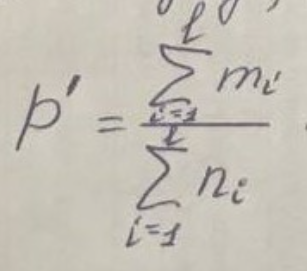 p' = \frac{\sum_{i=1}^{l} m_i}{\sum_{i=1}^{l} n_i}